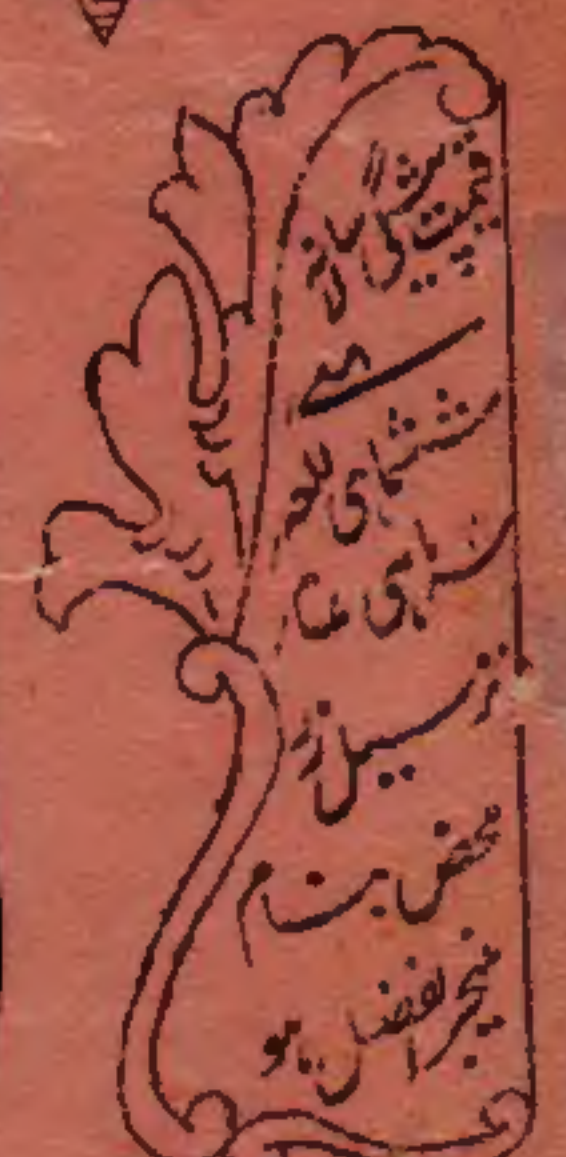 قیمت پیشگی سالانہ
ششماہی للعہ
سہ ماہی عہ
ترسیل زر
محض بنام
منیجر الفضل ہو